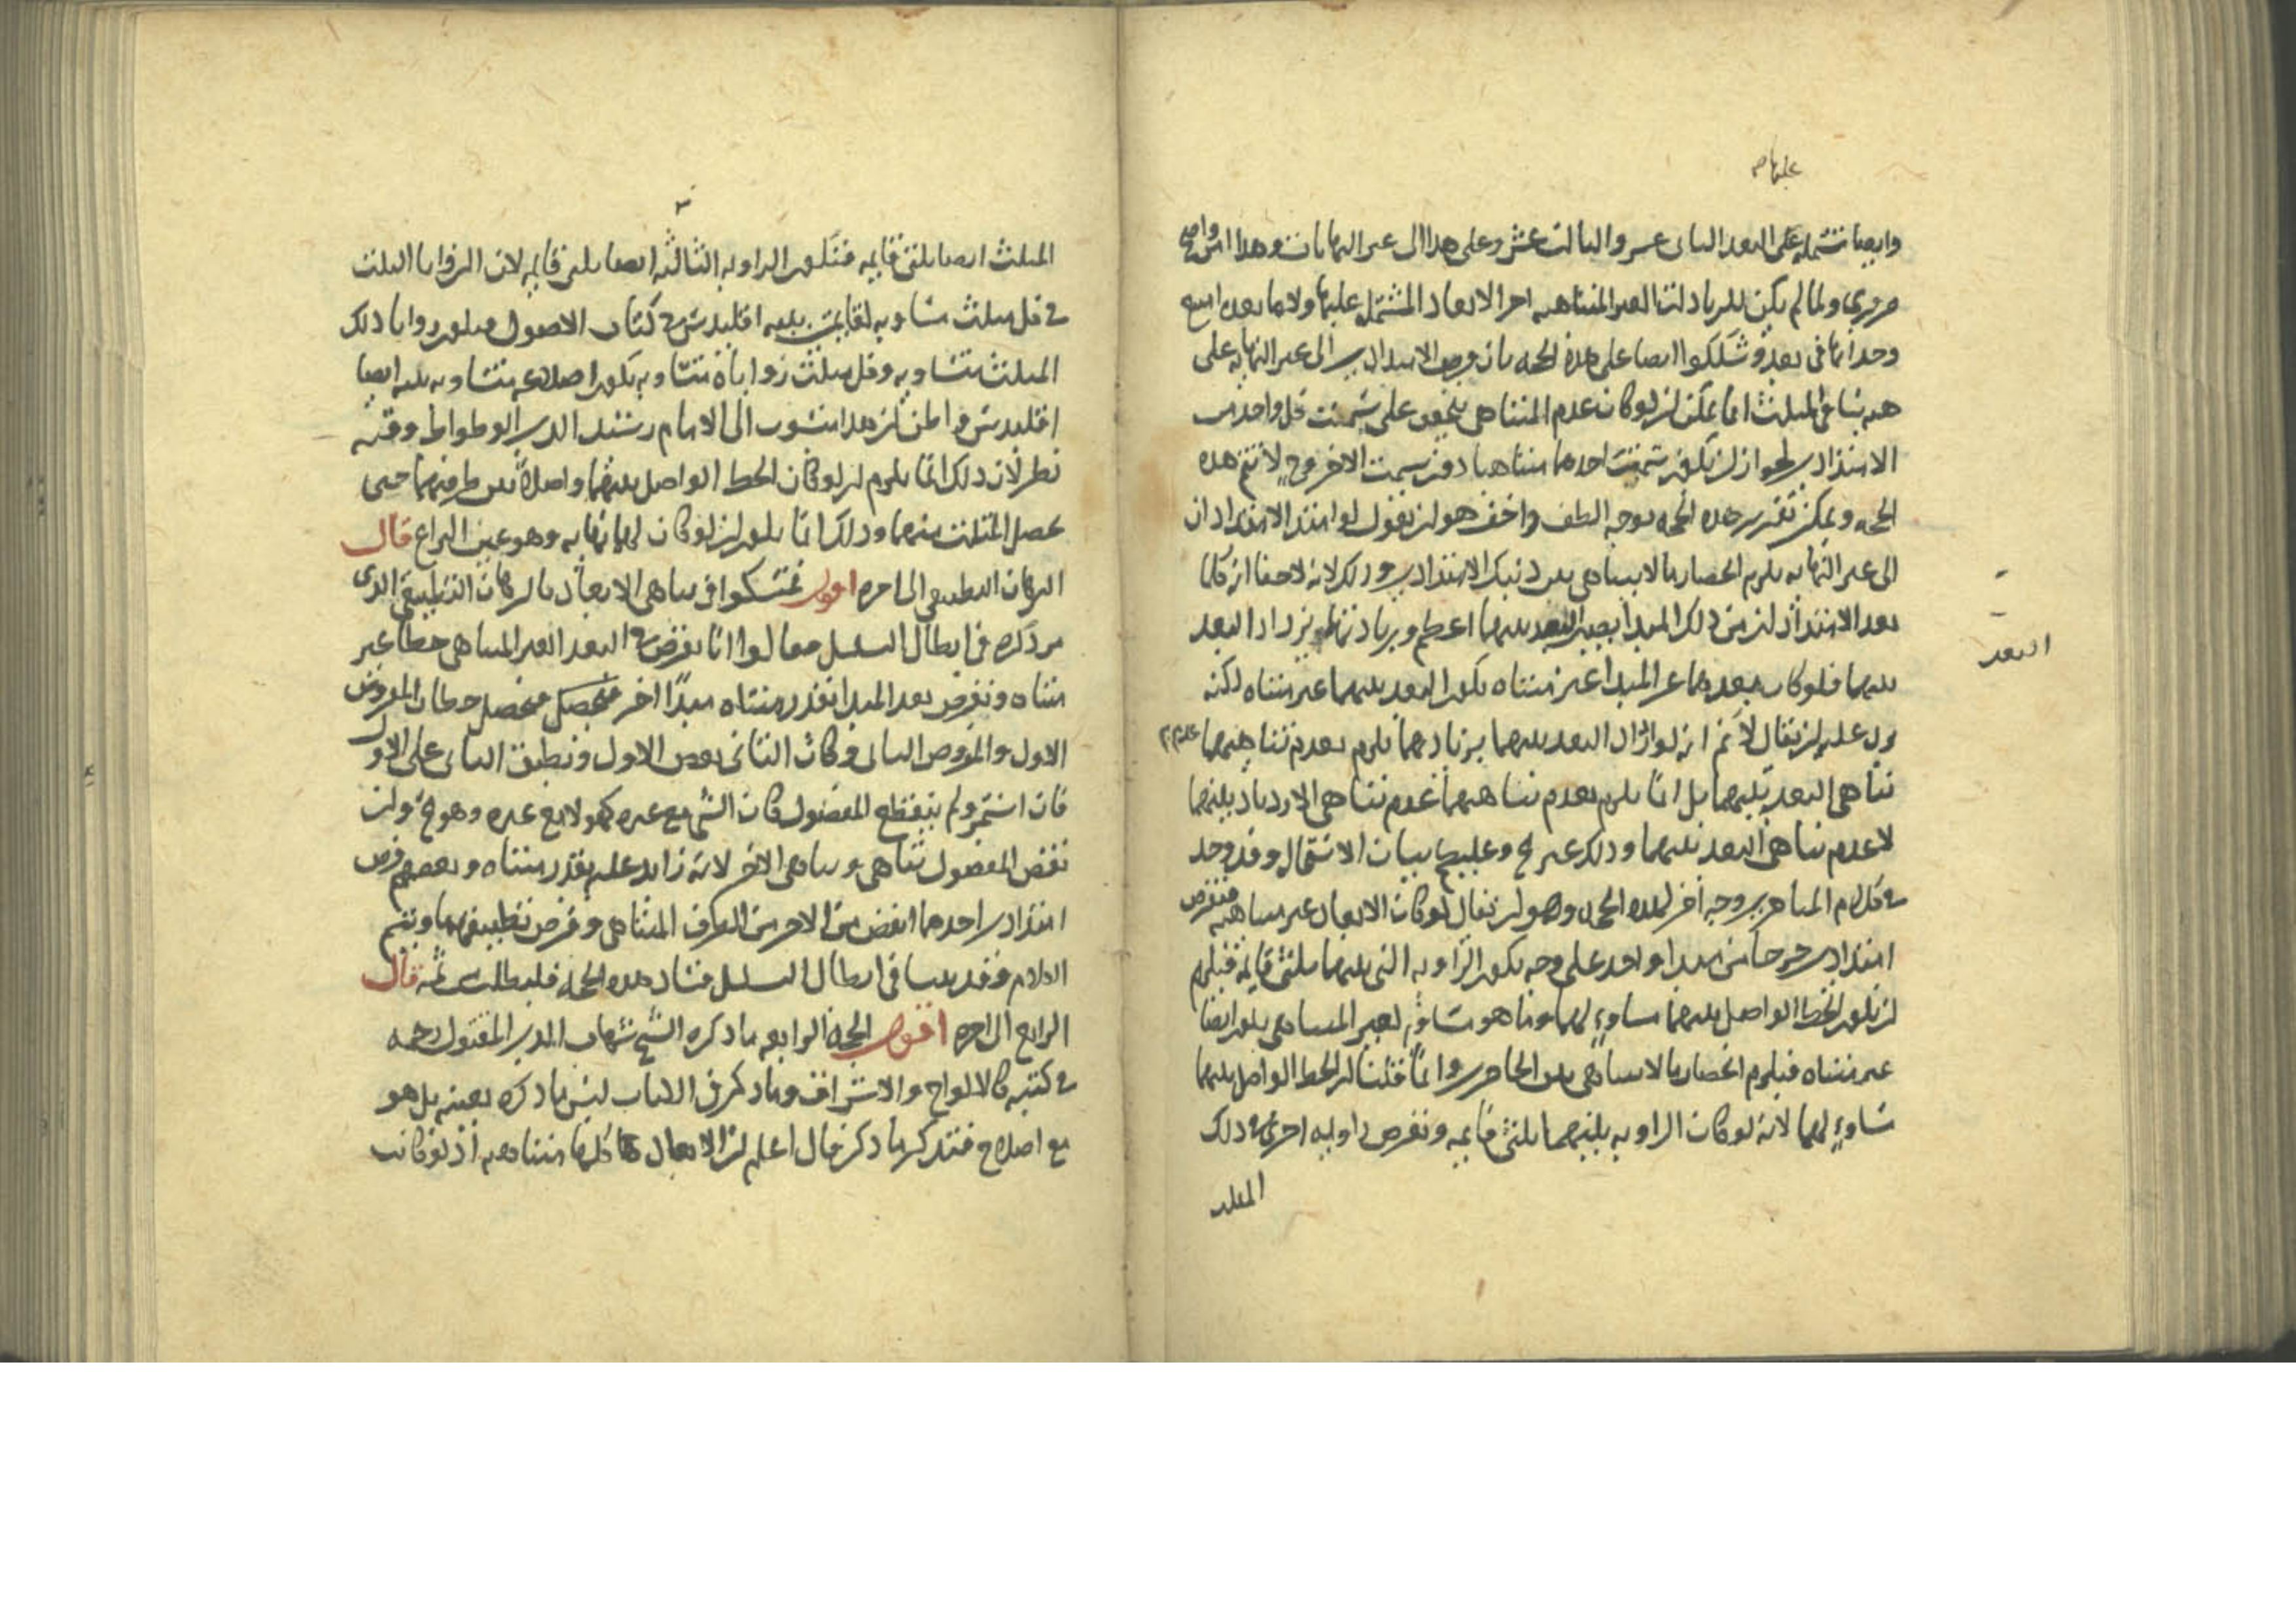 عليها صح
وايضا تشتمل على البعد الثانى عشر والثالث عشر وعلى هذا الى غير النهايات وهذا امر واضح
ضرورى ولما لم يكن للزيادات الغير المتناهية اخر الابعاد المشتمل عليها ولا ما بعدن امتنع
وجدانها فى بعد وشككوا ايضا على هذه الحجة بان فرض الامتدادين الى غير النهاية على
هيئة ساقى المثلث انما يمكن ان لو كان عدم التناهى يتحقق على سمت كل واحد من
الامتدادين لجواز ان يكون سمت احدهما متناهيا دون سمت الاخر وح لا تتم هذه
الحجة ويمكن تقرير هذه الحجة بوجه الطف واخف هو ان نقول لو امتد الامتدادان
الى غير النهاية يلزم انحصار ما لا يتناهى بين ذينك الامتدادين وذلك لانه لا خفا انه كلما
بعد الامتدادان من ذلك المبدا يصير البعد بينهما اعظم وبزيادتهما يزداد البعد
البعد
بينهما فلو كان بعدهما عن المبدا غير متناه يكون البعد بينهما غير متناه لكنه
يرد عليه ان يقال لا نم انه لو ازداد البعد بينهما بزيادتهما يلزم بعدم تناهيهما عدم
تناهى البعد بينهما بل انما يلزم بعدم تناهيهما عدم تناهى الازدياد بينهما
لا عدم تناهى البعد بينهما وذلك غير مح وعليكم ببيان الاشتمال وقد وجد
فى كلام المتاخرين وجه اخر لهذه الحجة وهو ان يقال لو كان الابعاد غير متناهية فنفرض
امتدادين خرجا من مبدا واحد على وجه يكون الزاوية التى بينهما ثلثى قايمة فيلزم
ان يكون الخط الواصل بينهما مساو لهما وما هو مساو لغير المتناهى يكون ايضا
غير متناه فيلزم انحصار ما لا يتناهى بين الحاصرين وانما قلنا ان الخط الواصل بينهما
مساو لهما لانه لو كان الزاوية بينهما ثلثى قايمة ونفرض زاوية اخرى فى ذلك
المثلث
المثلث ايضا ثلثى قايمة فتكون الزاوية الثالثة ايضا ثلثى قايمة لان الزوايا الثلث
فى كل مثلث مساوية لقايمتين بينه اقليدس فى كتاب الاصول فيكون زوايا ذلك
المثلث متساوية وكل مثلث زواياه متساوية يكون اضلاعه متساوية بينه ايضا
اقليدس واظن ان هذا منسوب الى الامام رشيد الدين الوطواط وفيه
نظر لان ذلك انما يلزم ان لو كان الخط الواصل بينهما واصلا بين طرفيهما حتى
يحصل المثلث منهما وذلك انما يكون ان لو كان لهما نهاية وهو عين النزاع قال
البرهان التطبيقى الى اخره اقول تمسكوا فى تناهى الابعاد بالبرهان التطبيقى الذى
مر ذكره فى ابطال التسلسل فقالوا انا نفرض فى البعد الغير المتناهى خطا غير
متناه ونفرض بعد المبدا بقدر متناه مبدا اخر فيحصل خطان المفروض
الاول والمفروض الثانى وكان الثانى بعض الاول ونطبق الثانى على الاول
فان استمر ولم ينقطع المفضول كان الشى مع غيره كهو لا مع غيره وهو مح وان
نقض المفضول تناهى وتناهى الاخر لانه زايد عليه بقدر متناه وبعضهم فرض
امتدادين احدهما انقص من الاخر من الطرف المتناهى وفرض تطبيقهما وتمم
الكلام وقد بينا فى ابطال التسلسل فساد هذه الحجة فليطلب ثمه قال
الرابع الى اخره اقول الحجة الرابعه ما ذكره الشيخ شهاب الدين المقتول رحمه
فى كتبه كالالواح والاشراف وما ذكر فى الكتاب ليس ما ذكره بعينه بل هو
مع اصلاح فنذكر ما ذكر قال اعلم ان الابعاد كلها متناهية اذ لو كانت